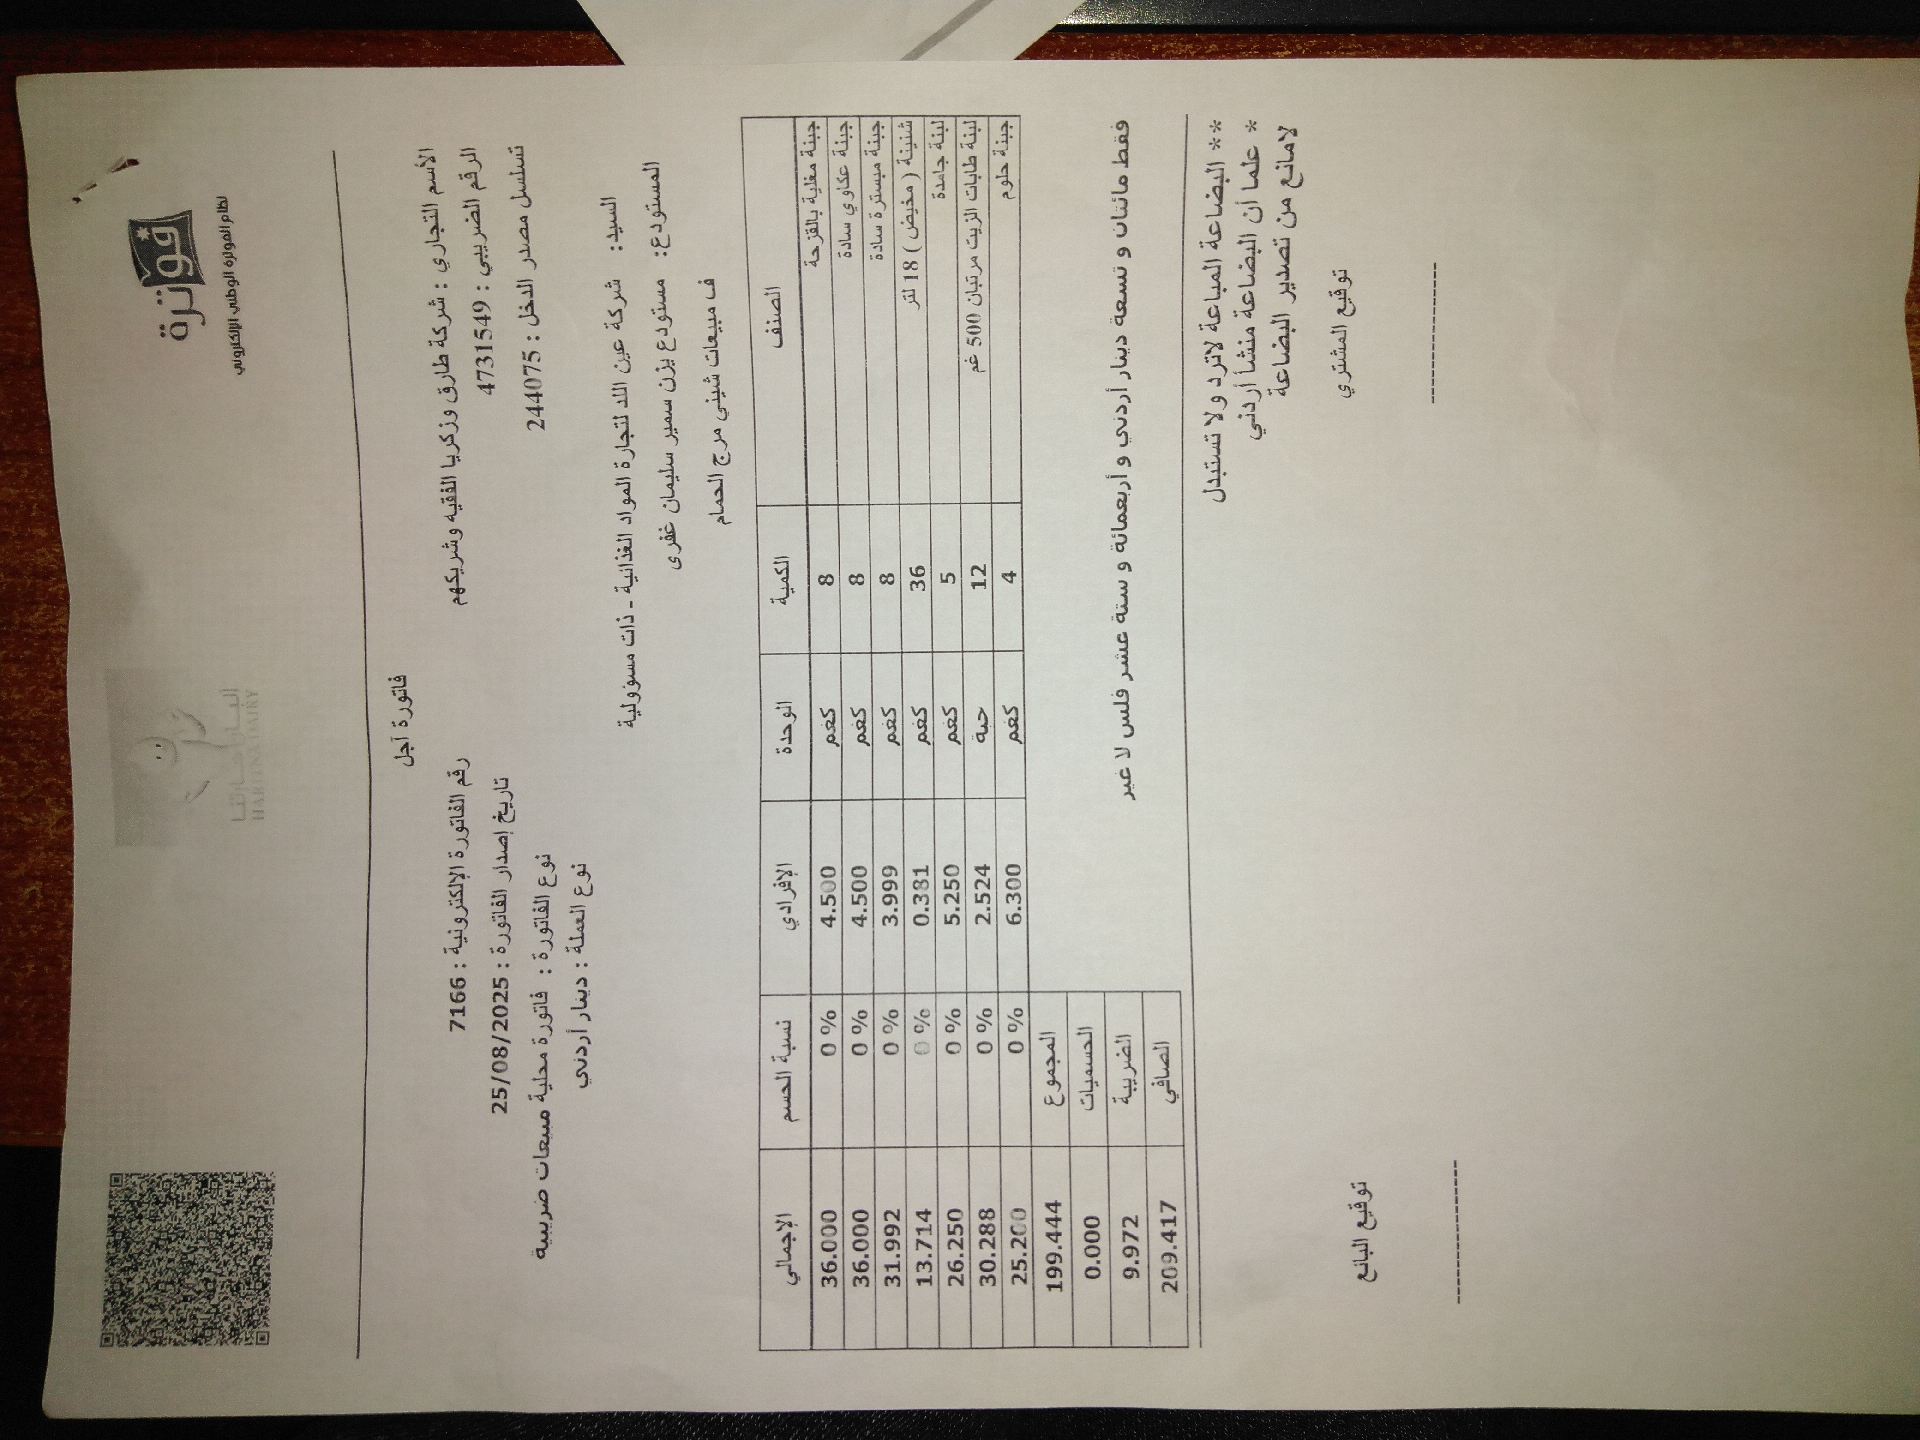 فوترة
نظام الفوترة الوطني الإلكتروني
HARITNA DAIRY
فاتورة آجل
الأسم التجاري : شركة طارق وزكريا الفقيه وشريكهم
الرقم الضريبي : 4731549
تسلسل مصدر الدخل : 244075
رقم الفاتورة الإلكترونية : 7166
تاريخ إصدار الفاتورة : 25/08/2025
نوع الفاتورة : فاتورة محلية مبيعات ضريبية
نوع العملة : دينار أردني
السيد: شركة عين اللد لتجارة المواد الغذائية - ذات مسؤولية
المستودع: مستودع يزن سمير سليمان غفرى
ف مبيعات شيني مرج الحمام
الصنف الكمية الوحدة الإفرادي نسبة الحسم الإجمالي
جبنة مغلية بالقزحة 8 كغم 4.500 0 % 36.000
جبنة عكاوي سادة 8 كغم 4.500 0 % 36.000
جبنة مبسترة سادة 8 كغم 3.999 0 % 31.992
شنينة ( مخيض ) 18 لتر 36 كغم 0.381 0 % 13.714
لبنة جامدة 5 كغم 5.250 0 % 26.250
لبنة طابات الزيت مرتبان 500 غم 12 حبة 2.524 0 % 30.288
جبنة حلوم 4 كغم 6.300 0 % 25.200
المجموع 199.444
الحسميات 0.000
الضريبة 9.972
الصافي 209.417
فقط مائتان و تسعة دينار أردني و أربعمائة و ستة عشر فلس لا غير
** البضاعة المباعة لاترد ولا تستبدل
* علما أن البضاعة منشأ أردني
لامانع من تصدير البضاعة
توقيع المشتري
توقيع البائع